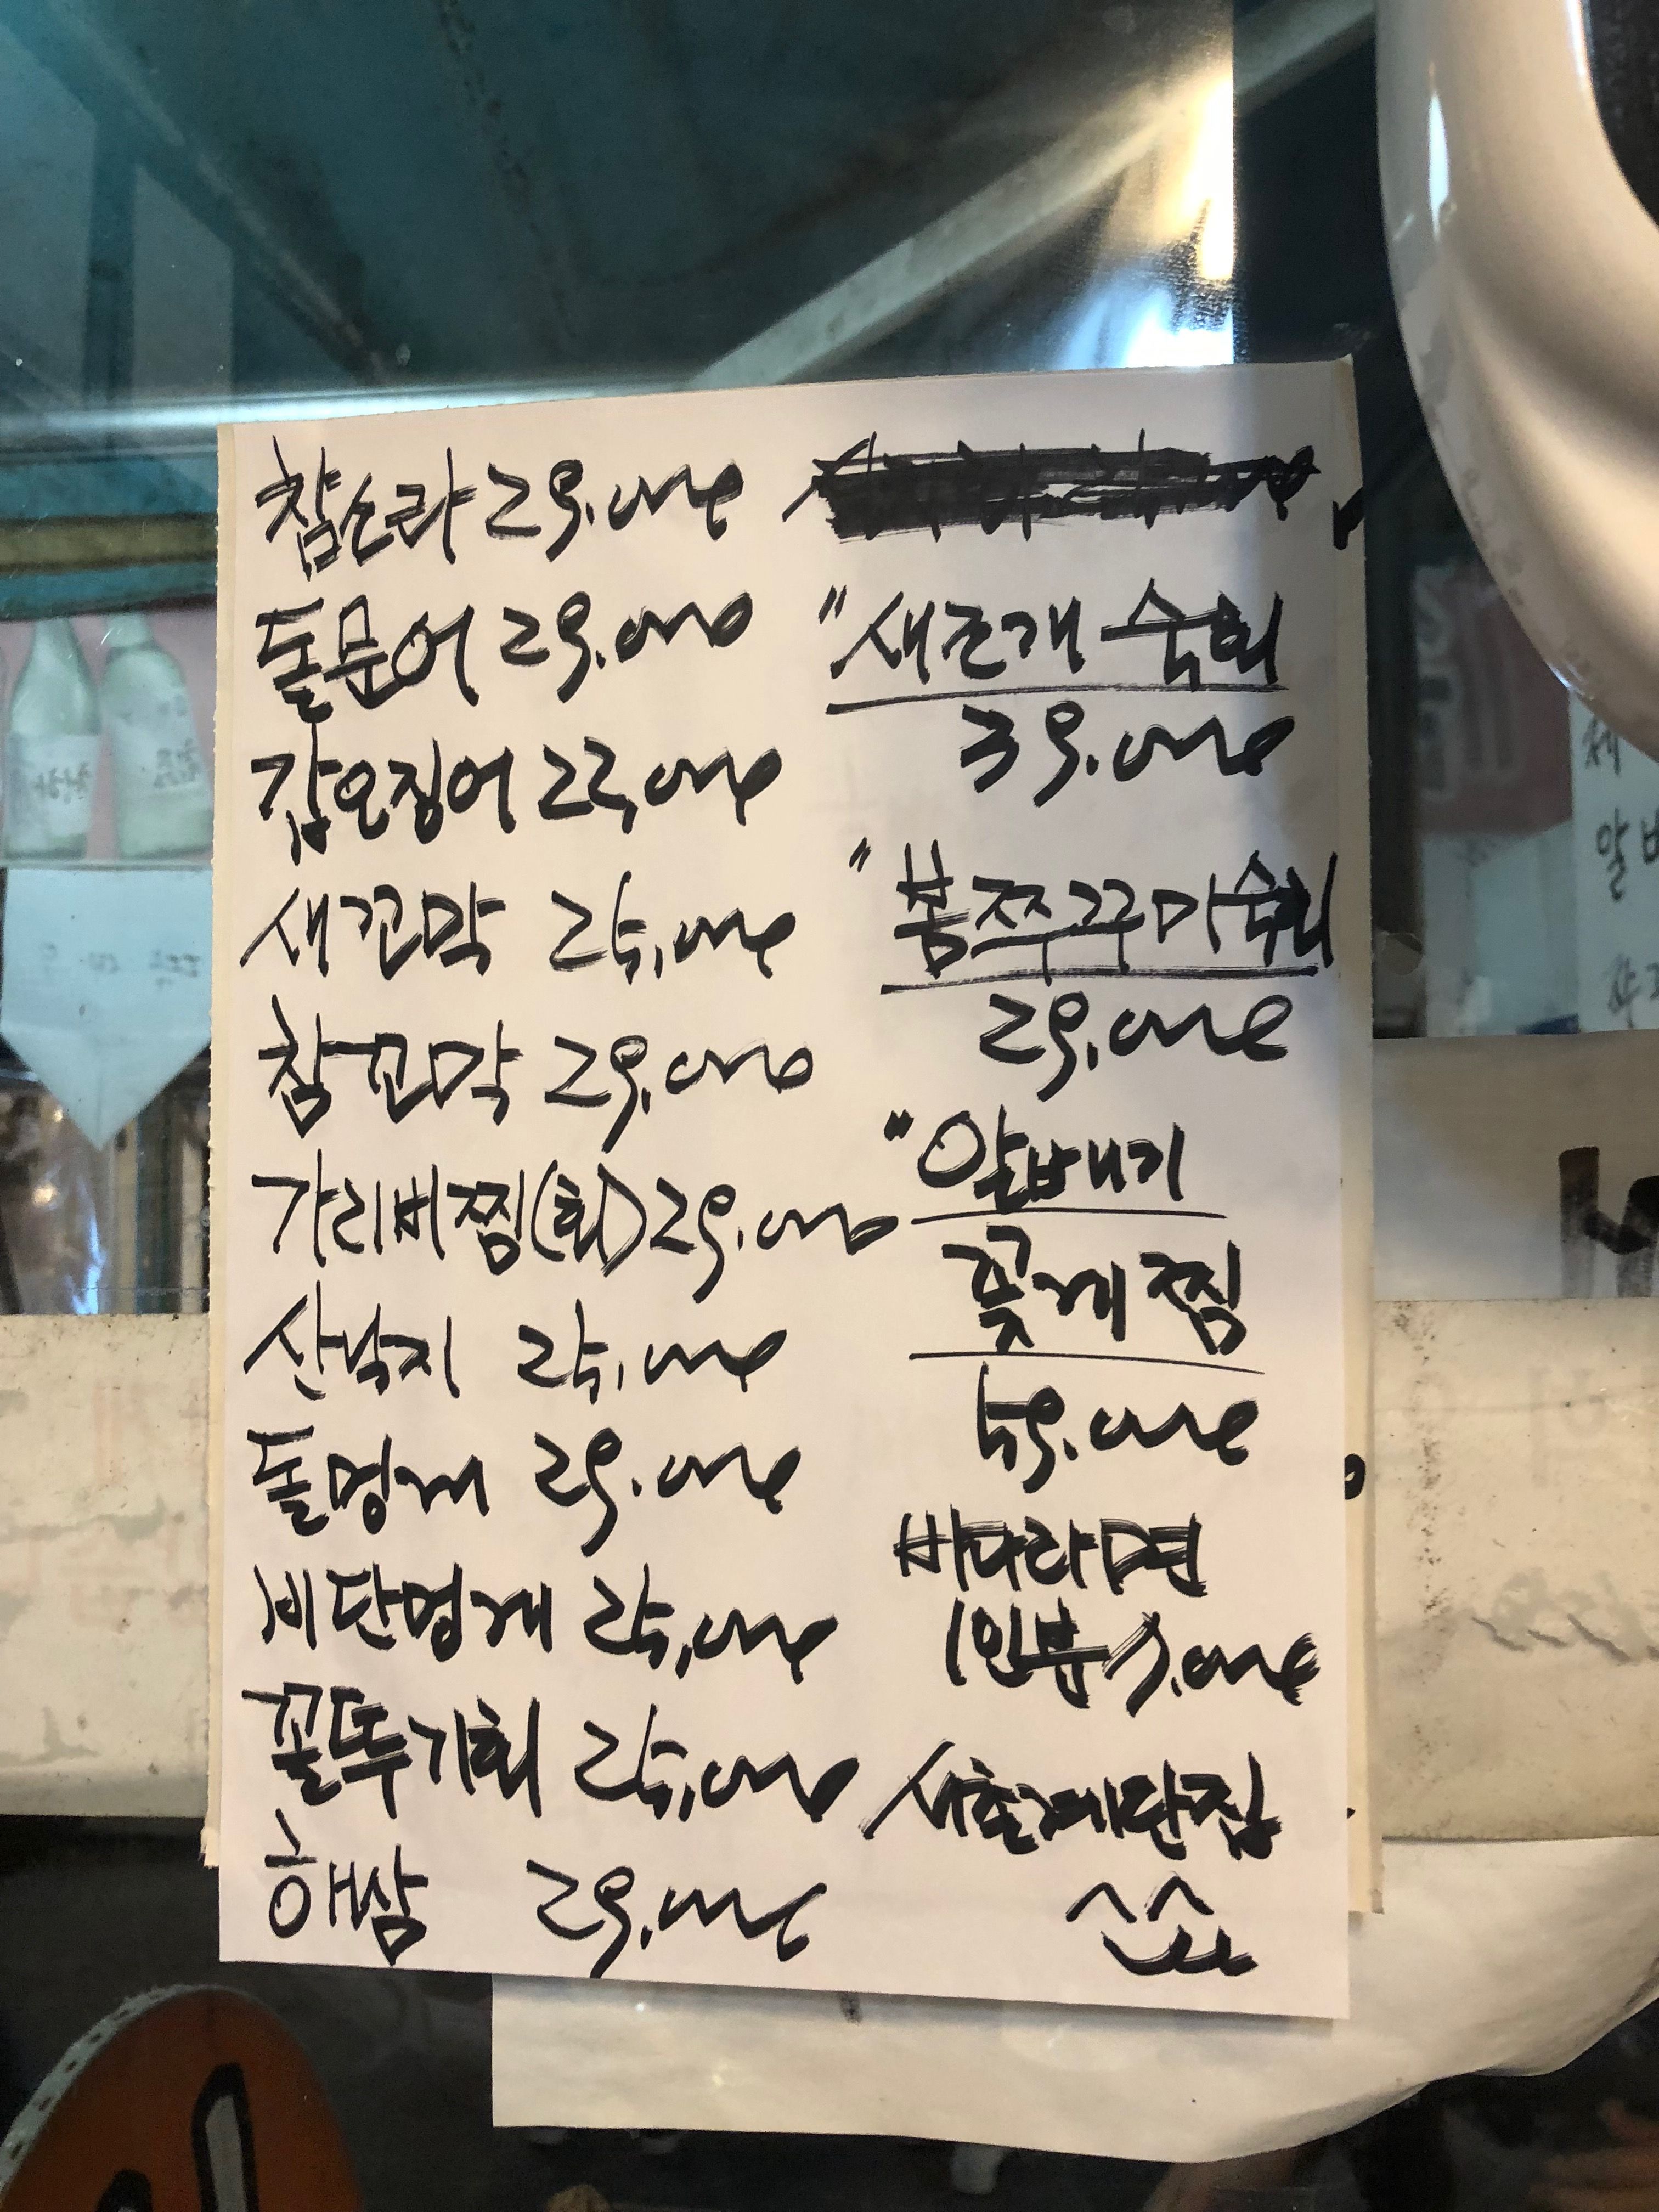 참소라 29.000
돌문어 29.000
갑오징어
새꼬막 25,000
참꼬막 29.000
가리비찜(회) 29.000
산낙지 25,000
돌멍게 29.000
비단멍게 25,000
꼴뚜기회 25,000
해삼 29.000
"새조개 숙회
39.000
"봄쭈꾸미숙회
29.000
"알배기
꽃게찜
59.000
바다라면
1인분
서촌계단집